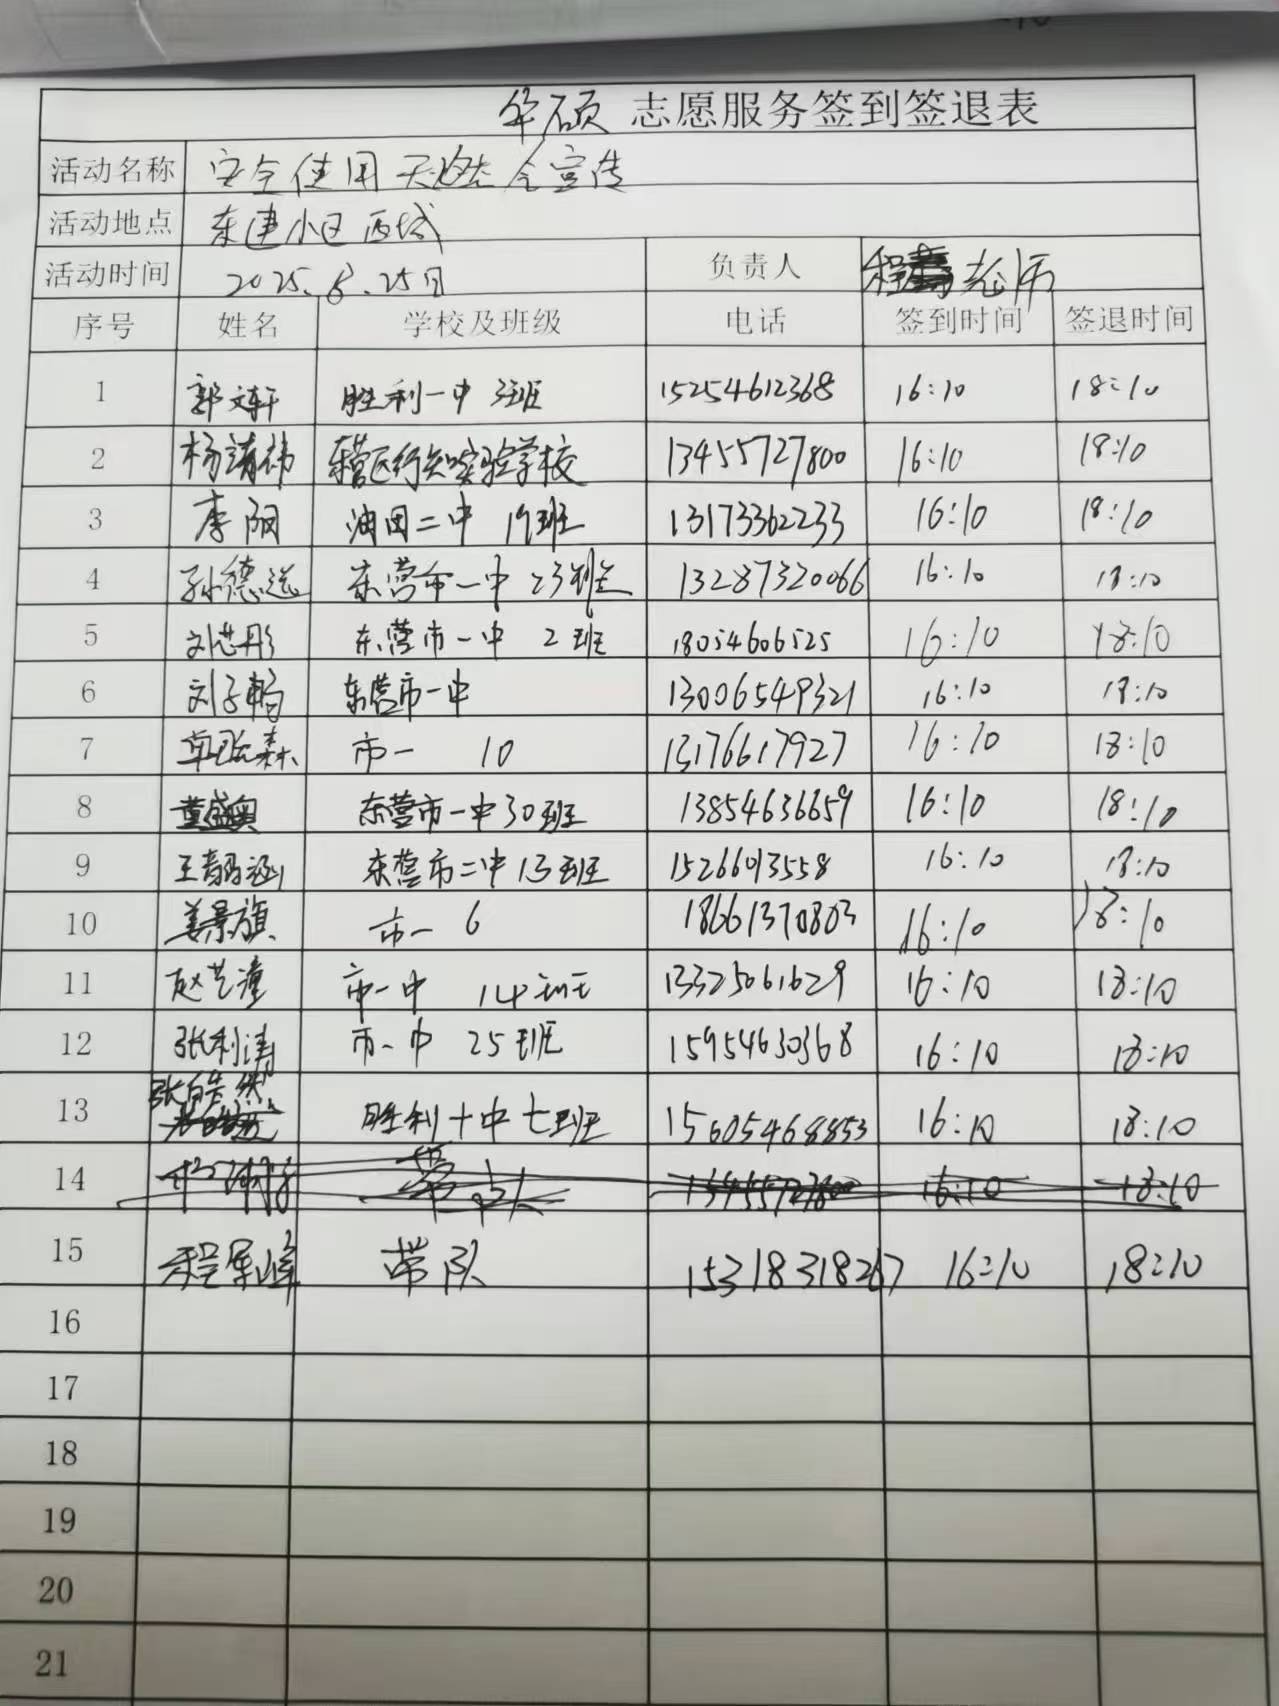 华硕 志愿服务签到签退表
活动名称 安全使用天然气宣传
活动地点 东建小区西城
活动时间 2025.8.25日 负责人 程 老师
序号 姓名 学校及班级 电话 签到时间 签退时间
1 郭文轩 胜利一中 3班 15254612368 16:10 18:10
2 杨靖祎 东营区行知实验学校 13455727800 16:10 18:10
3 李阔 油田二中 19班 13173362233 16:10 18:10
4 孙德远 东营市一中 23班 13287320066 16:10 18:10
5 刘芯彤 东营市一中 2班 18054606525 16:10 18:10
6 刘子畅 东营市一中 13006549321 16:10 18:10
7 森 市一 10 13176617927 16:10 18:10
8 董盛奥 东营市一中30班 13854636659 16:10 18:10
9 王 涵 东营市二中13班 15266013558 16:10 18:10
10 姜景旗 市一 6 18661370803 16:10 18:10
11 赵艺潼 市一中 14班 13325061629 16:10 18:10
12 张利涛 市一中 25班 15954630368 16:10 18:10
13 张皓然 胜利十中七班 15605468853 16:10 18:10
14 带队 13455727800 16:10 18:10
15 程军峰 带队 15318318267 16:10 18:10
16
17
18
19
20
21